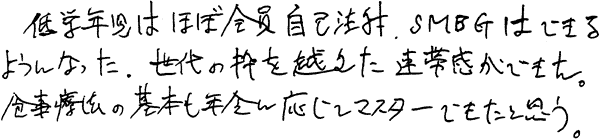 低学年児はほぼ全員自己注射、SMBGはできる
ようになった。世代の枠を越えた連帯感ができた。
食事療法の基本も年令に応じてマスターできたと思う。